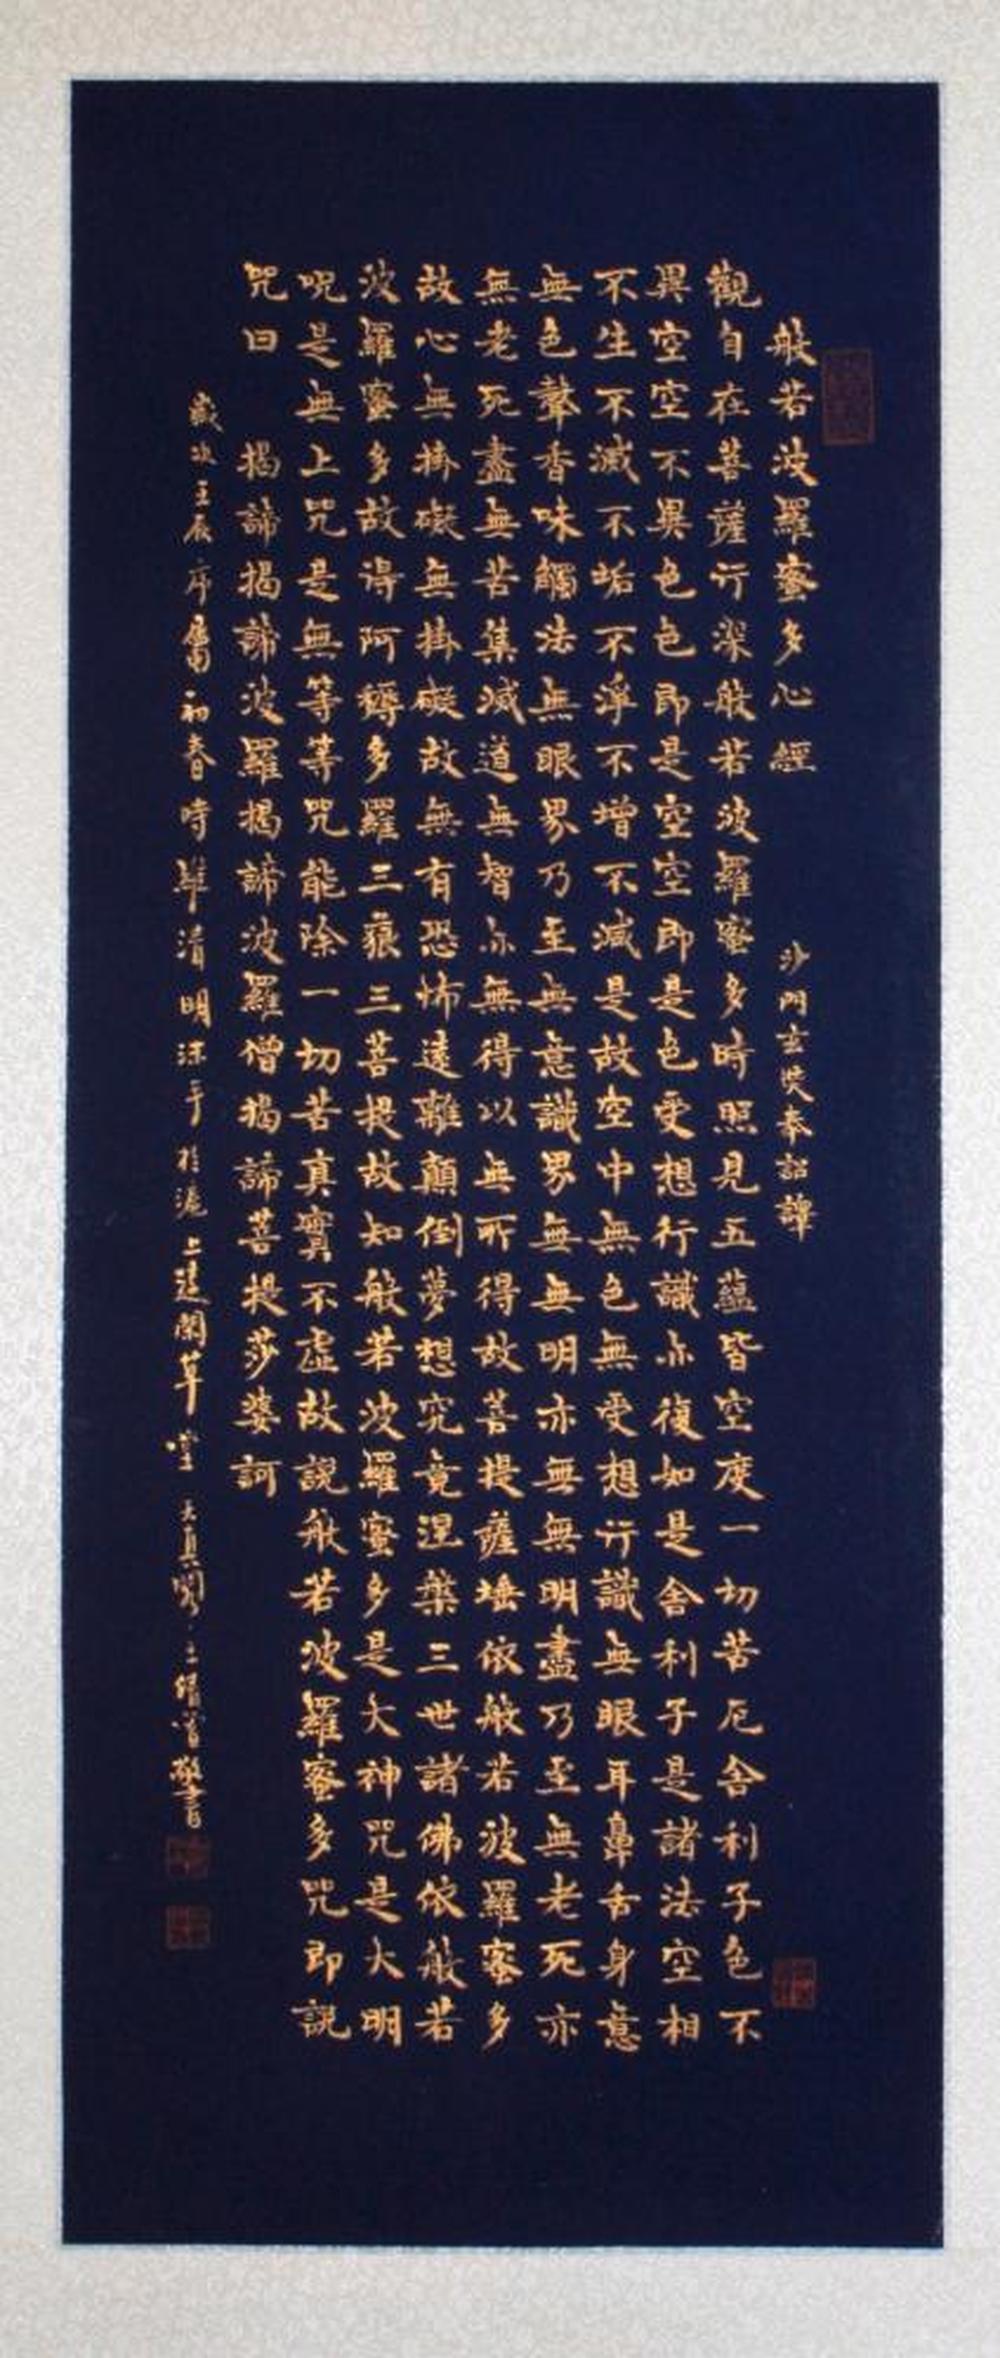 般若波羅蜜多心經 沙門玄奘奉詔譯
觀自在菩薩行深般若波羅蜜多時照見五蘊皆空度一切苦厄舍利子色不
異空空不異色色即是空空即是色受想行識亦復如是舍利子是諸法空相
不生不滅不垢不淨不增不減是故空中無色無受想行識無眼耳鼻舌身意
無色聲香味觸法無眼界乃至無意識界無無明亦無無明盡乃至無老死亦
無老死盡無苦集滅道無智亦無得以無所得故菩提薩埵依般若波羅蜜多
故心無掛礙無掛礙故無有恐怖遠離顛倒夢想究竟涅槃三世諸佛依般若
波羅蜜多故得阿耨多羅三藐三菩提故知般若波羅蜜多是大神咒是大明
呪是無上咒是無等等咒能除一切苦真實不虛故說般若波羅蜜多咒即說
咒曰 揭諦揭諦波羅揭諦波羅僧揭諦菩提莎婆訶
歲次壬辰序屬初春時維清明沐手於滬上